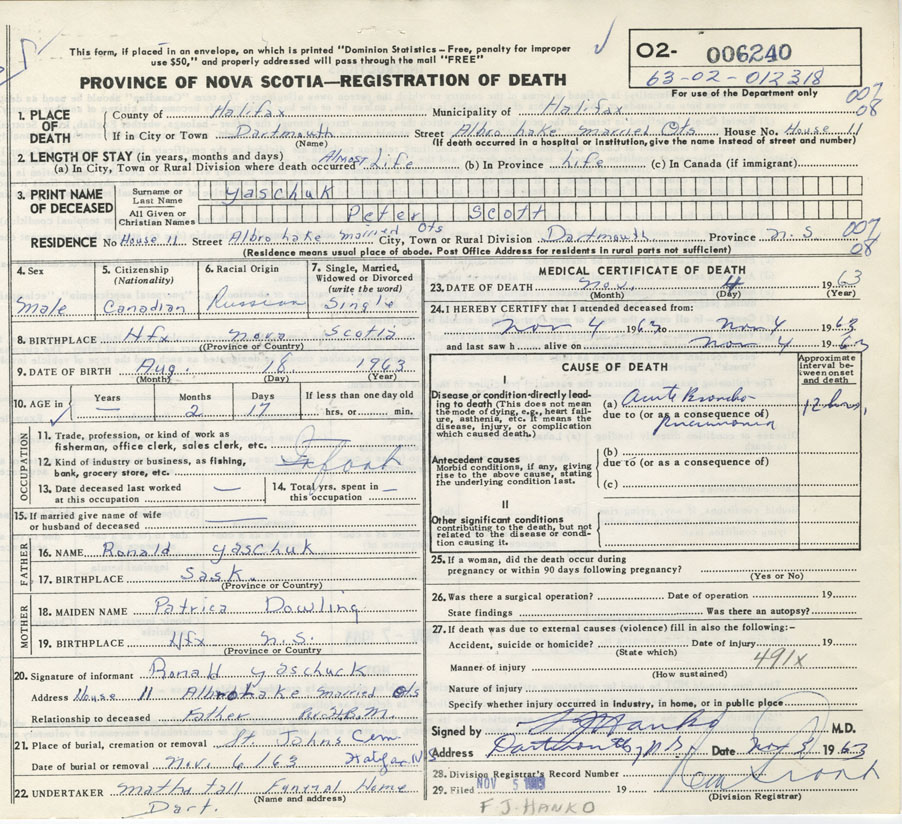 This form, if placed in an envelope, on which is printed "Dominion Statistics – Free, penalty for improper
use $50," and properly addressed will pass through the mail "FREE"
PROVINCE OF NOVA SCOTIA—REGISTRATION OF DEATH
02- 006240
63-02-012318
For use of the Department only
007
08
1. PLACE OF DEATH
County of Halifax Municipality of Halifax
If in City or Town Dartmouth Street Albro Lake Married Qts House No. House 11
(Name) (If death occurred in a hospital or institution, give the name instead of street and number)
2. LENGTH OF STAY (in years, months and days)
(a) In City, Town or Rural Division where death occurred Almost Life (b) In Province Life (c) In Canada (if immigrant)
3. PRINT NAME OF DECEASED
Surname or Last Name Yaschuk
All Given or Christian Names Peter Scott
RESIDENCE No House 11 Street Albro Lake Married Qts City, Town or Rural Division Dartmouth Province N.S
007
08
(Residence means usual place of abode. Post Office Address for residents in rural parts not sufficient)
4. Sex
Male
5. Citizenship (Nationality)
Canadian
6. Racial Origin
Russian
7. Single, Married, Widowed or Divorced (write the word)
Single
8. BIRTHPLACE Hfx Nova Scotia
(Province or Country)
9. DATE OF BIRTH Aug. 18 1963
(Month) (Day) (Year)
10. AGE in Years — Months 2 Days 17 If less than one day old
hrs. or min.
OCCUPATION
11. Trade, profession, or kind of work as
fisherman, office clerk, sales clerk, etc.
12. Kind of industry or business, as fishing,
bank, grocery store, etc.
Infant
13. Date deceased last worked
at this occupation —
14. Total yrs. spent in
this occupation —
15. If married give name of wife
or husband of deceased —
FATHER
16. NAME Ronald Yaschuk
17. BIRTHPLACE Sask.
(Province or Country)
MOTHER
18. MAIDEN NAME Patrica Dowling
19. BIRTHPLACE Hfx N.S.
(Province or Country
20. Signature of informant Ronald Yaschuck
Address House 11 Albro Lake Married Qts
Relationship to deceased Father Per H.B.M.
21. Place of burial, cremation or removal St Johns Cem
Date of burial or removal Nov. 6/63 Halifax N S
22. UNDERTAKER Funeral Home
(Name and address)
Dart.
MEDICAL CERTIFICATE OF DEATH
23. DATE OF DEATH Nov. 4 1963
(Month) (Day) (Year)
24. I HEREBY CERTIFY that I attended deceased from:
Nov 4 1963 to Nov 4 1963
and last saw h alive on Nov 4 1963
CAUSE OF DEATH
Approximate interval between onset and death
I
Disease or condition directly leading
to death (This does not mean
the mode of dying, e.g., heart failure,
asthenia, etc. It means the
disease, injury, or complication
which caused death.)
(a) Acute Broncho
due to (or as a consequence of)
pneumonia
12 hours
Antecedent causes
Morbid conditions, if any, giving
rise to the above cause, stating
the underlying condition last.
(b)
due to (or as a consequence of)
(c)
II
Other significant conditions
contributing to the death, but not
related to the disease or condition
causing it.
25. If a woman, did the death occur during
pregnancy or within 90 days following pregnancy?
(Yes or No)
26. Was there a surgical operation? Date of operation 19
State findings Was there an autopsy?
27. If death was due to external causes (violence) fill in also the following:–
Accident, suicide or homicide? Date of injury 19
(State which)
491X
Manner of injury
(How sustained)
Nature of injury
Specify whether injury occurred in Industry, in home, or in public place
Signed by F J Hanko M.D.
Address Dartmouth, N.S. Date Nov 5 1963
28. Division Registrar's Record Number
29. Filed NOV 5 1963 19
(Division Registrar)
F J. HANKO